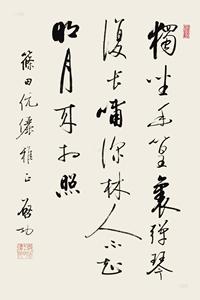 獨坐幽篁裏彈琴
復長嘯深林人不知
明月來相照
篠田伉儷雅正 啓功